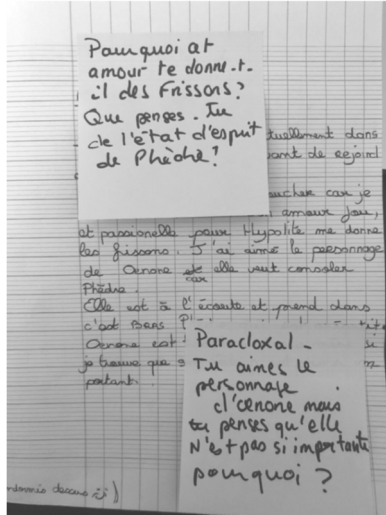 Pourquoi at
amour te donne-t-
il des Frissons?
Que penses-Tu
de l'état d'esprit
de Phèdre?
tuellement dans
ant de rejoind
oucher car je
amour fou,
et passionelle pour Hypolite me donne
les frissons. J'ai aimé le personnage
de Oenone car elle veut consoler
Phèdre.
Elle est à l'écoute et prend dans
c'est Bras
Oenone est
je trouve que
portant.
Paradoxal -
Tu aimes le
personnage
d'œnone mais
tu penses qu'elle
N'est pas si importante
pourquoi?